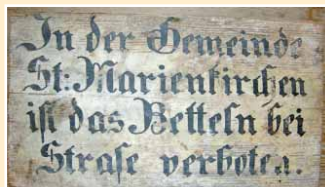 In der Gemeinde
St: Marienkirchen
ist das Betteln bei
Strafe verboten.